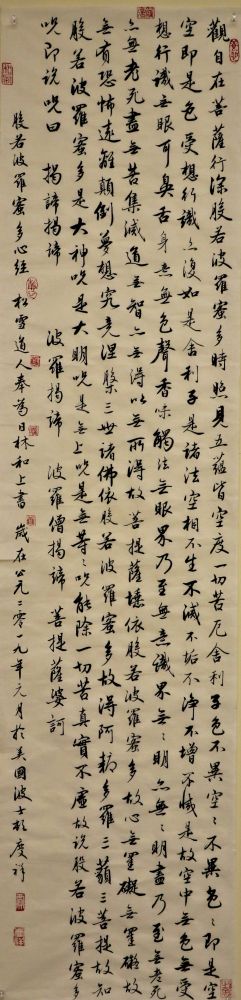 觀自在菩薩行深般若波羅蜜多時照見五蘊皆空度一切苦厄舍利子色不異空〻不異色〻即是空
空即是色受想行識亦復如是舍利子是諸法空相不生不滅不垢不淨不增不減是故空中無色無受
想行識無眼耳鼻舌身意無色聲香味觸法無眼界乃至無意識界無〻明亦無〻明盡乃至無老死
亦無老死盡無苦集滅道無智亦無得以無所得故菩提薩埵依般若波羅蜜多故心無罣礙無罣礙故
無有恐怖遠離顛倒夢想究竟涅槃三世諸佛依般若波羅蜜多故得阿耨多羅三藐三菩提故知
般若波羅蜜多是大神咒是大明咒是無上咒是無等〻咒能除一切苦真實不虛故說般若波羅蜜多
咒即說咒曰 揭諦揭諦 波羅揭諦 波羅僧揭諦 菩提薩婆訶
般若波羅蜜多心經 松雪道人奉為日林和上書 歲在公元二零一九年元月於美國波士頓慶祥